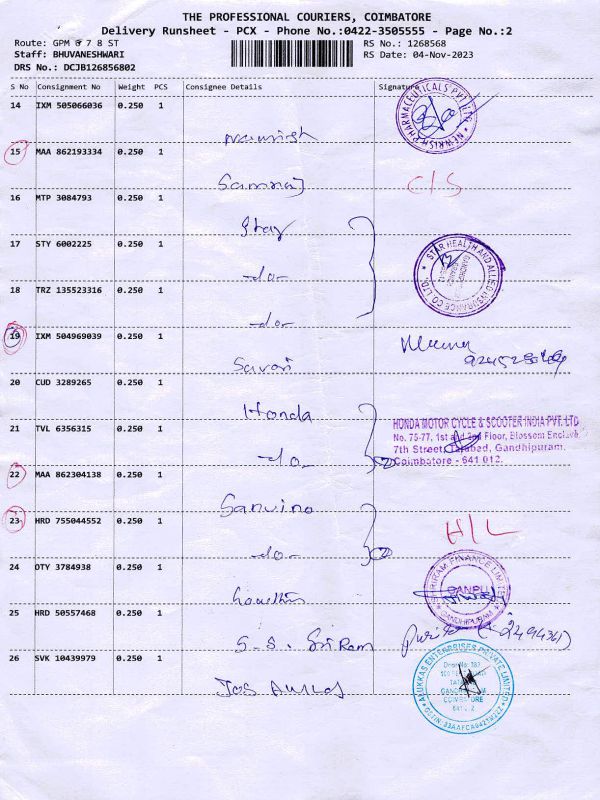 THE PROFESSIONAL COURIERS, COIMBATORE
Delivery Runsheet - PCX - Phone No.:0422-3505555 - Page No.:2
Route: GPM 6 7 8 ST
Staff: BHUVANESHWARI
DRS No.: DCJB126856802
RS No.: 1268568
RS Date: 04-Nov-2023
S No Consignment No Weight PCS Consignee Details Signature
14 IXM 505066036 0.250 1
15 MAA 862193334 0.250 1
C/S
16 MTP 3084793 0.250 1
Star
17 STY 6002225 0.250 1
-do-
STAR HEALTH AND ALLIED INSURANCE CO. LTD.
18 TRZ 135523316 0.250 1
-do-
19 IXM 504969039 0.250 1
Savari
20 CUD 3289265 0.250 1
Honda
21 TVL 6356315 0.250 1
-do-
HONDA MOTOR CYCLE & SCOOTER INDIA PVT. LTD
No. 75-77, 1st and 2nd Floor, Blossom Enclave,
7th Street, Gandhipuram,
Coimbatore - 641 012.
22 MAA 862304138 0.250 1
Sanvino
23 HRD 755044552 0.250 1
-do-
H/L
24 OTY 3784938 0.250 1
SHRIRAM FINANCE LIMITED
GANDHIPURAM
25 HRD 50557468 0.250 1
S.S. SriRam
26 SVK 10439979 0.250 1
Jos Alukkas
ALUKKAS ENTERPRISES PRIVATE LIMITED
COIMBATORE